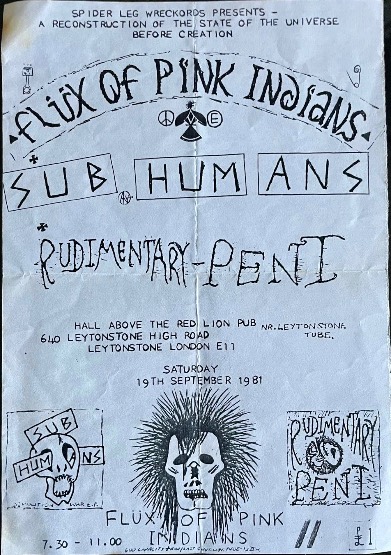 SPIDER LEG WRECKORDS PRESENTS -
A RECONSTRUCTION OF THE STATE OF THE UNIVERSE
BEFORE CREATION
FLÜX OF PINK INDIANS
E
SUB HUMANS
RUDIMENTARY-PENI
HALL ABOVE THE RED LION PUB NR. LEYTONSTONE
640 LEYTONSTONE HIGH ROAD TUBE.
LEYTONSTONE LONDON E11
SATURDAY
19TH SEPTEMBER 1981
SUB
HUM ANS
RUDIMENTARY
PENI
FLUX OF PINK
INDIANS
7.30 - 11.00
£1